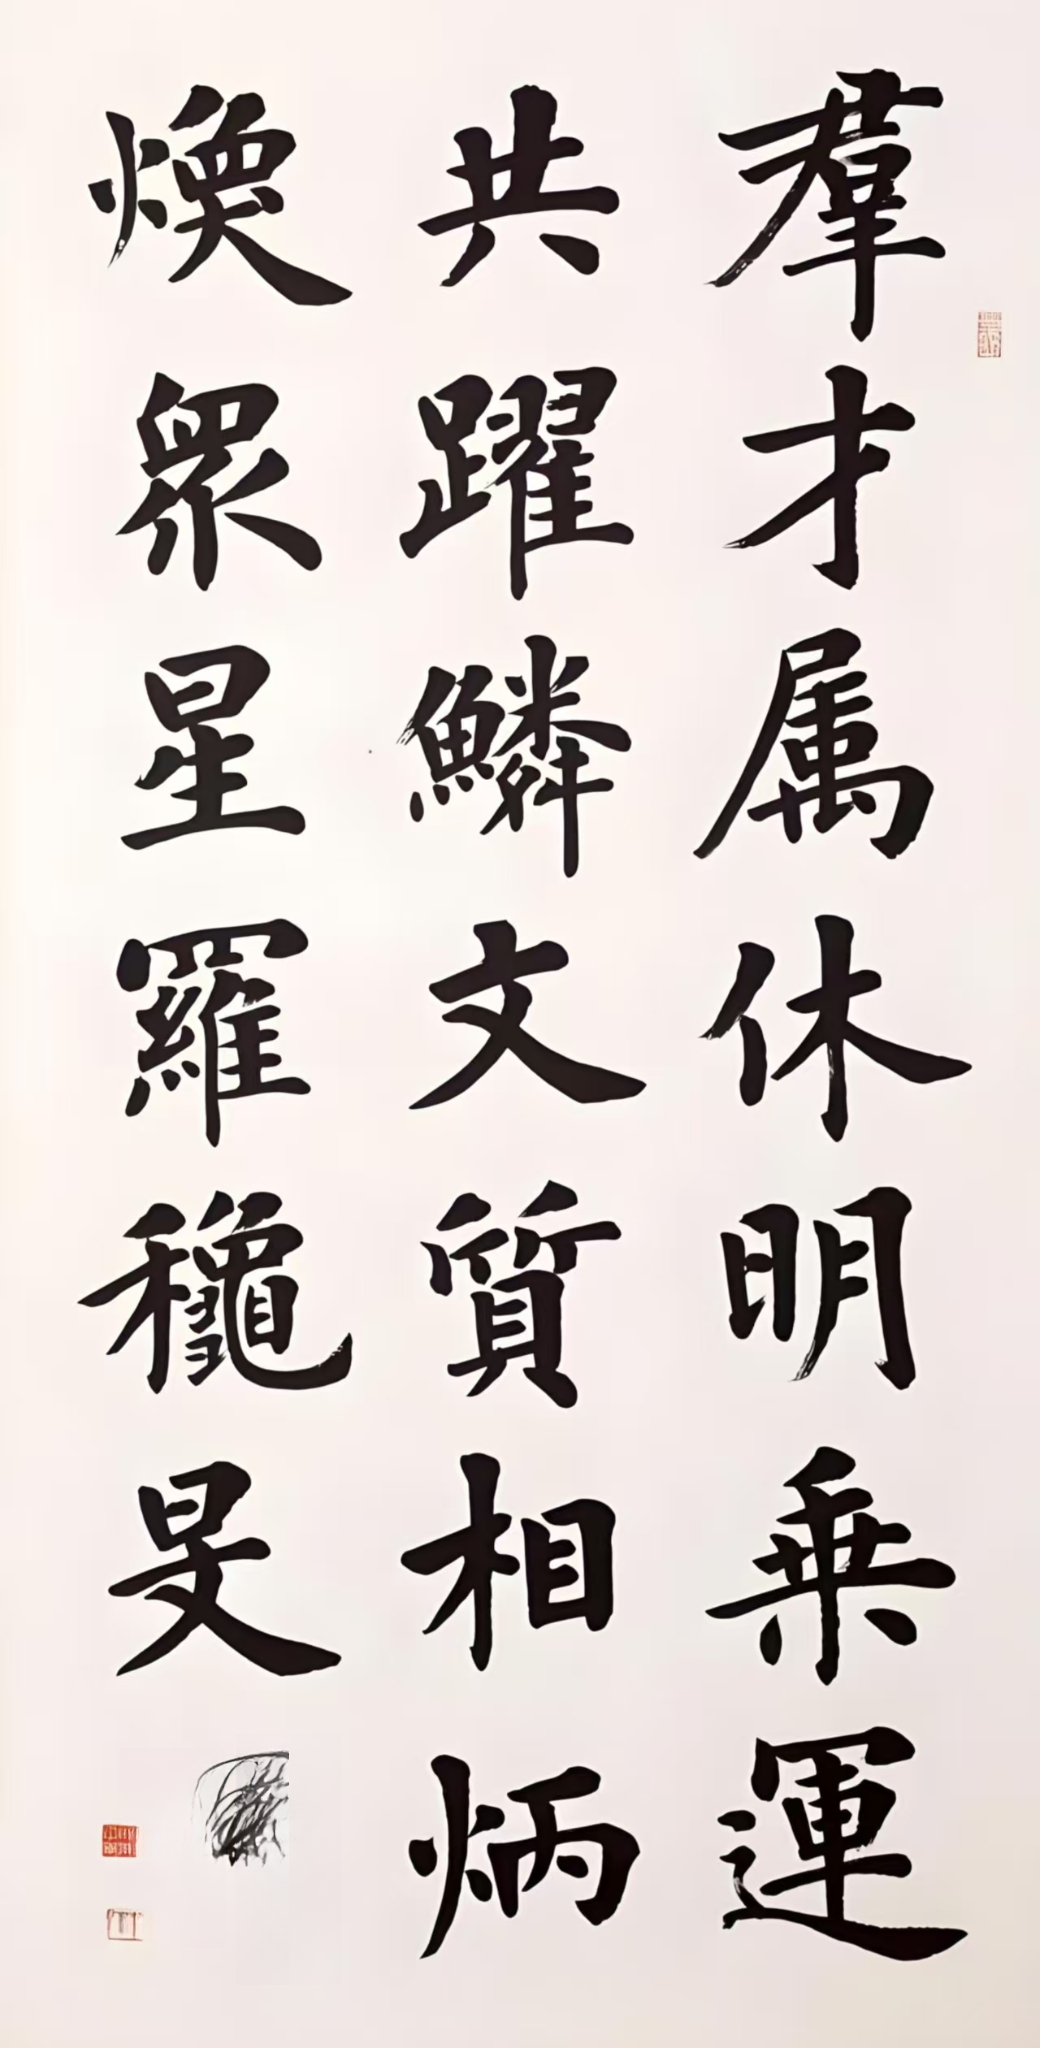 羣才属休明乗運
共躍鱗文質相炳
煥衆星羅穐旻